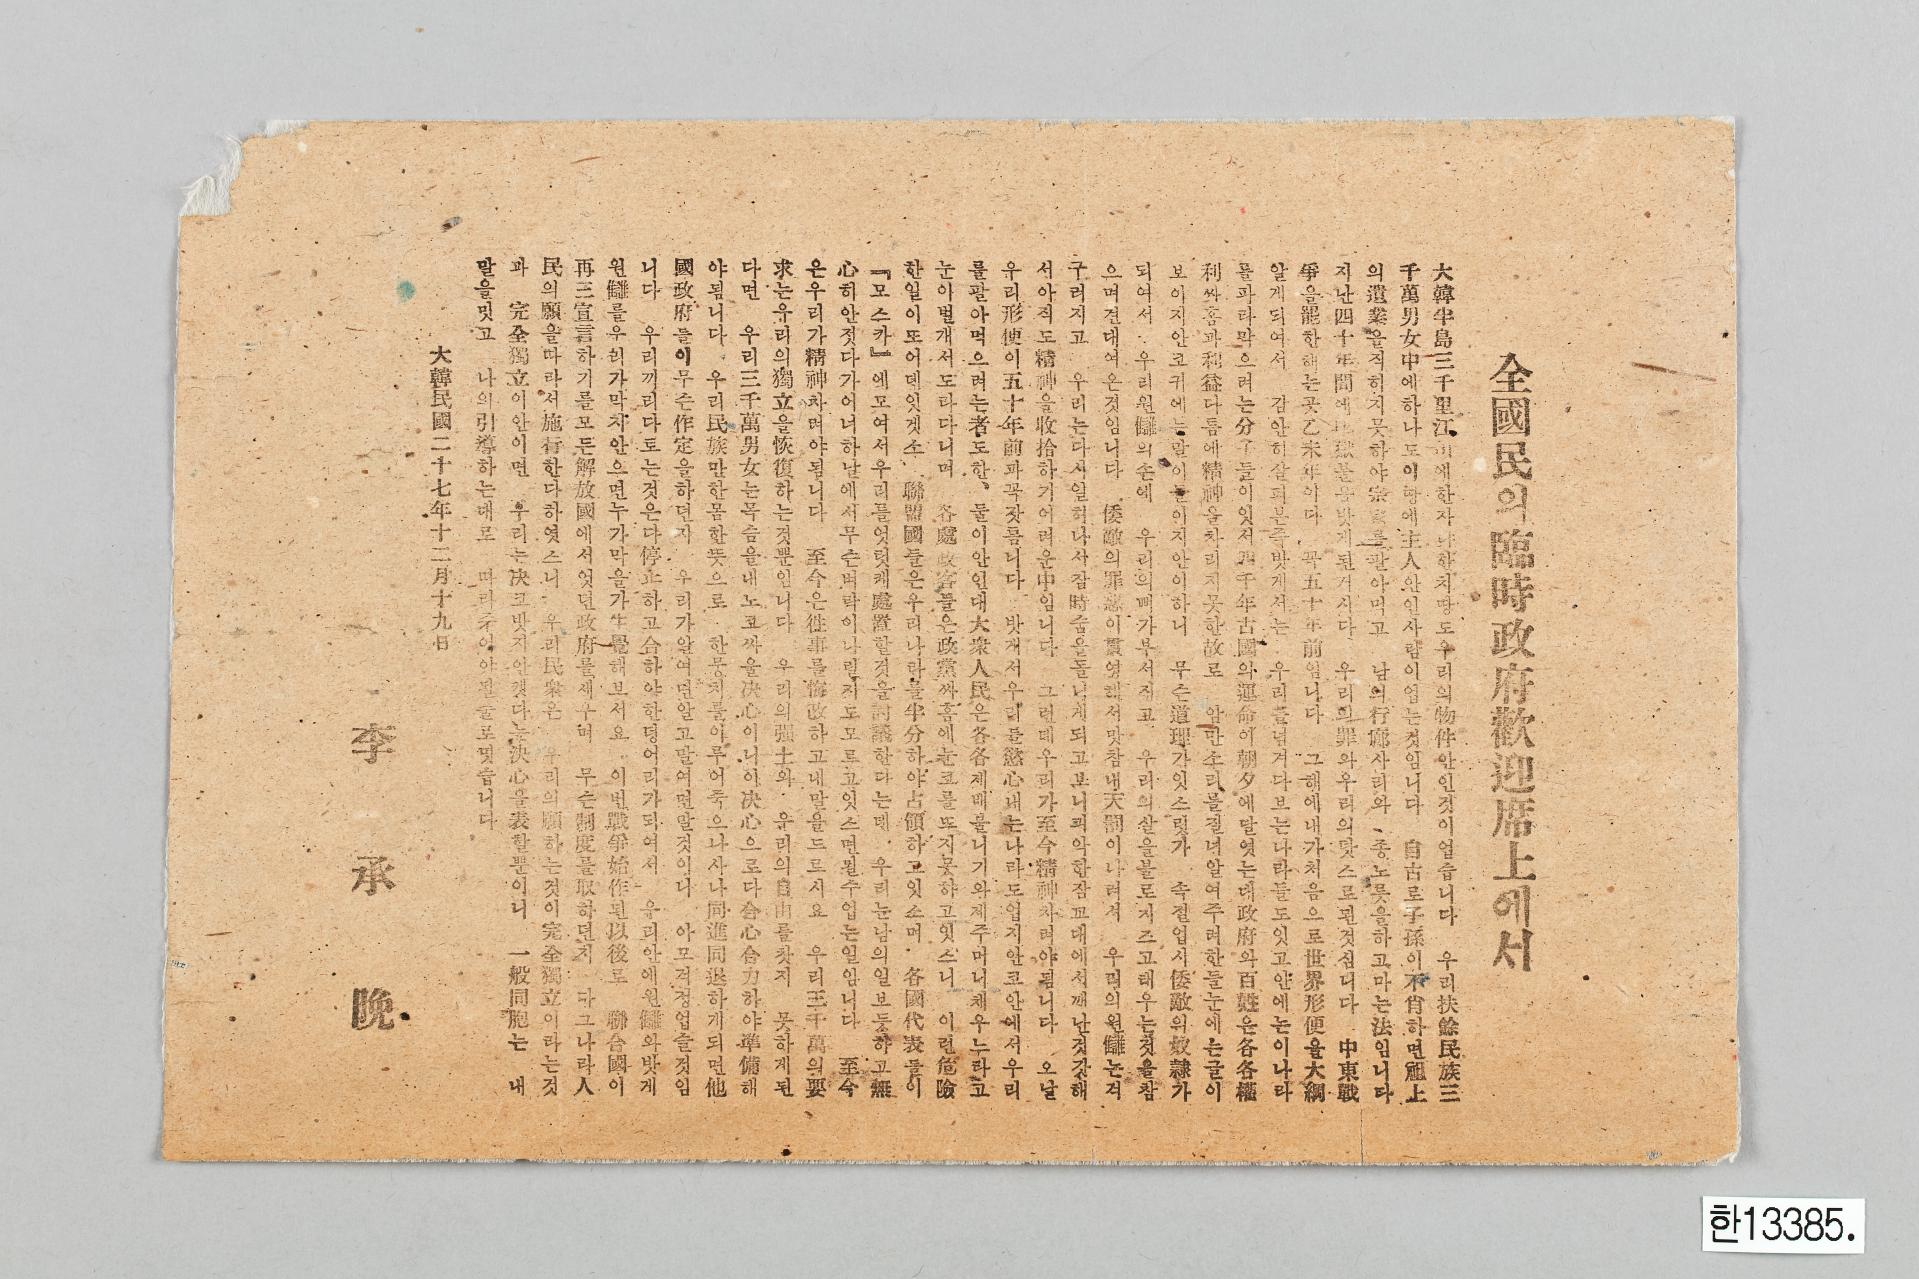 全國民의臨時政府歡迎席上에서
大韓半島三千里江 에한자나한치땅도우리의物件안인것이업습니다 우리扶餘民族三
千萬男女中에하나도이땅에主人안인사람이업는것임니다 自古로子孫이不肖하면祖上
의遺業을직히지못하야 를팔아먹고 남의行廊사리와 종노릇을하고마는法임니다
지난四十年間에 우리의罪와우리의탓스로된것심니다 中東戰
爭을罷한해는곳乙未年이다 꼭五十年前임니다 그해에내가처음으로世界形便을大綱
알게되여서 감안히살펴본즉밧게서는 우리를넘겨다보는나라들도잇고안에는이나라
를파라먹으려는分子들이잇서四千年古國의運命이朝夕에달엿는대政府와百姓은各各權
利싸홈과利益다틈에精神을차리지못한故로 암만소리를질너알여주려한들눈에는글이
보이지안코귀에는말이들이지안이하니 무슨道理가잇스릿가 속절업시倭敵의奴隸가
되여서 우리원讐의손에 우리의뼈가부서지고 우리의살을불로지즈고태우는것을참
으며견대여온것임니다 倭敵의罪惡이貫영해서맛참내天罰이나려서 우리의원讐는거
구러지고 우리는다시일허나서잠時숨을돌니게되고보니괴악한잠꼬대에서깨난것갓해
서아직도精神을收拾하기어려운中임니다 그런데우리가至今精神차려야됨니다 오날
우리形便이五十年前과꼭갓틈니다 밧게서우리를慾心내는나라도업지안코안에서우리
를팔아먹으려는者도한、둘이안인대大衆人民은各各제배불니기와제주머니채우누라고
눈이벌개서도라다니며 各處政客들은政黨싸홈에눈코를뜨지못하고잇스니 이런危險
한일이또어데잇겟소 聯盟國들은우리나라를半分하야占領하고잇소며 各國代表들이
『모스카』에모여서우리를엇덧케處置할것을討議한다는데 우리는남의일보듯하고無
心히안젓다가어너하날에서무슨벼락이나릴지도모르고잇스면될수업는일임니다 至今
은우리가精神차려야됨니다 至今은往事를悔改하고내말을드르시요 우리三千萬의要
求는우리의獨立을恢復하는것뿐인니다 우리의疆土와 우리의自由를찻지 못하게된
다면 우리三千萬男女는목숨을내노코싸울决心이니이决心으로다合心合力하야準備해
야됨니다 우리民族만한몸한뜻으로 한뭉치를이루어죽으나사나同進同退하게되면他
國政府들이무슨作定을하던지 우리가알여면알고말여면말것이니 아모걱정업슬것임
니다 우리끼리다토는것은다停止하고合하야한덩어리가되여서 우리안에원讐와밧게
원讐를우리가막지안으면누가막을가生覺해보서요 이번戰爭始作된以後로 聯合國이
再三宣言하기를모든解放國에서엇던政府를세우며 무슨制度를取하던지 다그나라人
民의願을따라서施行한다하엿스니 우리民衆은 우리의願하는것이完全獨立이라는것
과 完全獨立이안이면 우리는决코밧지안켓다는决心을表할뿐이니 一般同胞는 내
말을밋고 나의引導하는대로 따라 줄로밋습니다
大韓民國二十七年十二月十九日
李承晩
한13385.